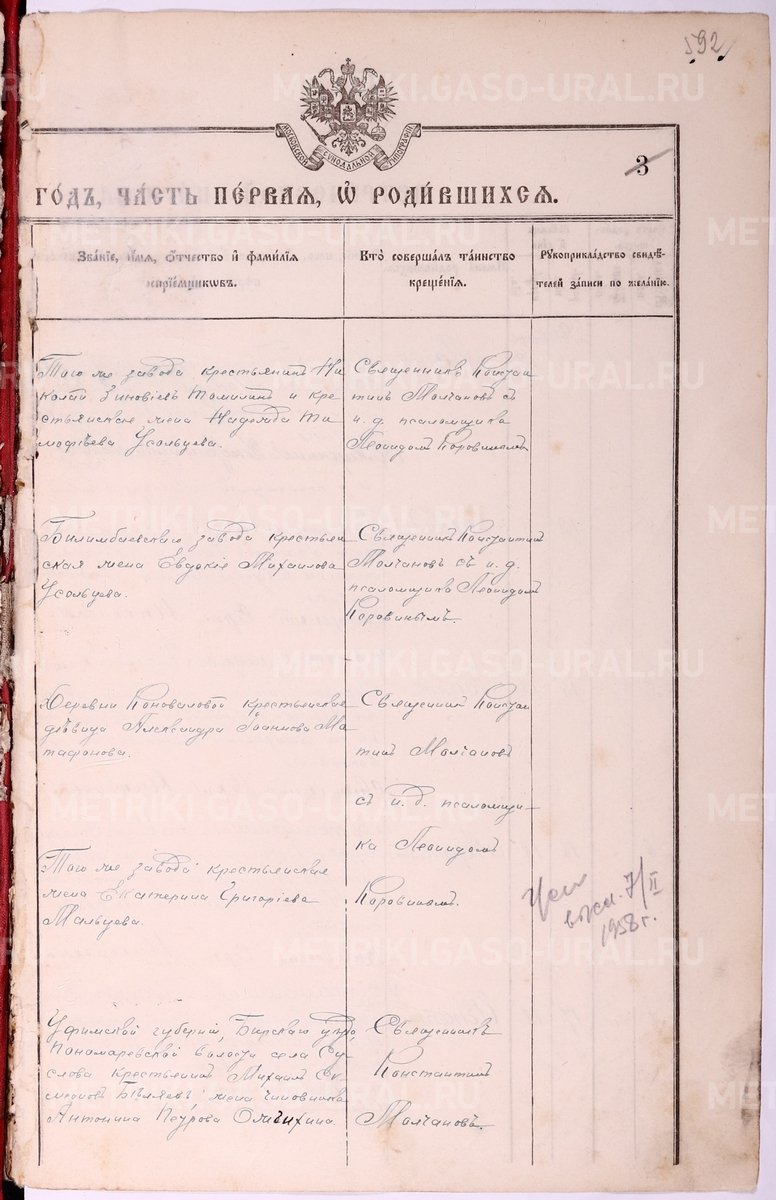 592
МОСКОВСКОЙ СУНОДАЛЬНОЙ ТИПОГРАФІИ
3
ГОДЪ, ЧАСТЬ ПЕРВАЯ, Ѡ РОДИВШИХСЯ.
Званіе, имя, отчество и фамилія
воспріемниковъ.
Кто совершалъ таинство
крещенія.
Рукоприкладство свидѣ-
телей записи по желанію.
Того же завода крестьянинъ Ни
колай Зиновіевъ Томилинъ и кре
стьянская жена Надежда Ти
мофѣева Усольцева.
Священникъ Констан
тинъ Молчановъ съ
и. д. псаломщика
Леонидомъ Коровинымъ
Билимбаевскаго завода крестьян
ская жена Евдокія Михаилова
Усольцева.
Священникъ Константинъ
Молчановъ съ и. д.
псаломщика Леонидомъ
Коровинымъ.
Деревни Коноваловой крестьянская
дѣвица Александра Іоаннова Ма
тафонова.
Священникъ Констан
тинъ Молчановъ
съ и. д. псаломщи-
ка Леонидомъ
Коровинымъ.
Того же завода крестьянская
жена Екатерина Григоріева
Мальцева.
выл. 7/II
1958 г.
Уфимской губерніи, Бирскаго уѣзда,
Пономаревской волости села Су
слова крестьянинъ Михаилъ Си
меоновъ Бѣляевъ; жена чиновника
Антонина Петрова
Священникъ
Константинъ
Молчановъ.
METRIKI.GASO-URAL.RU